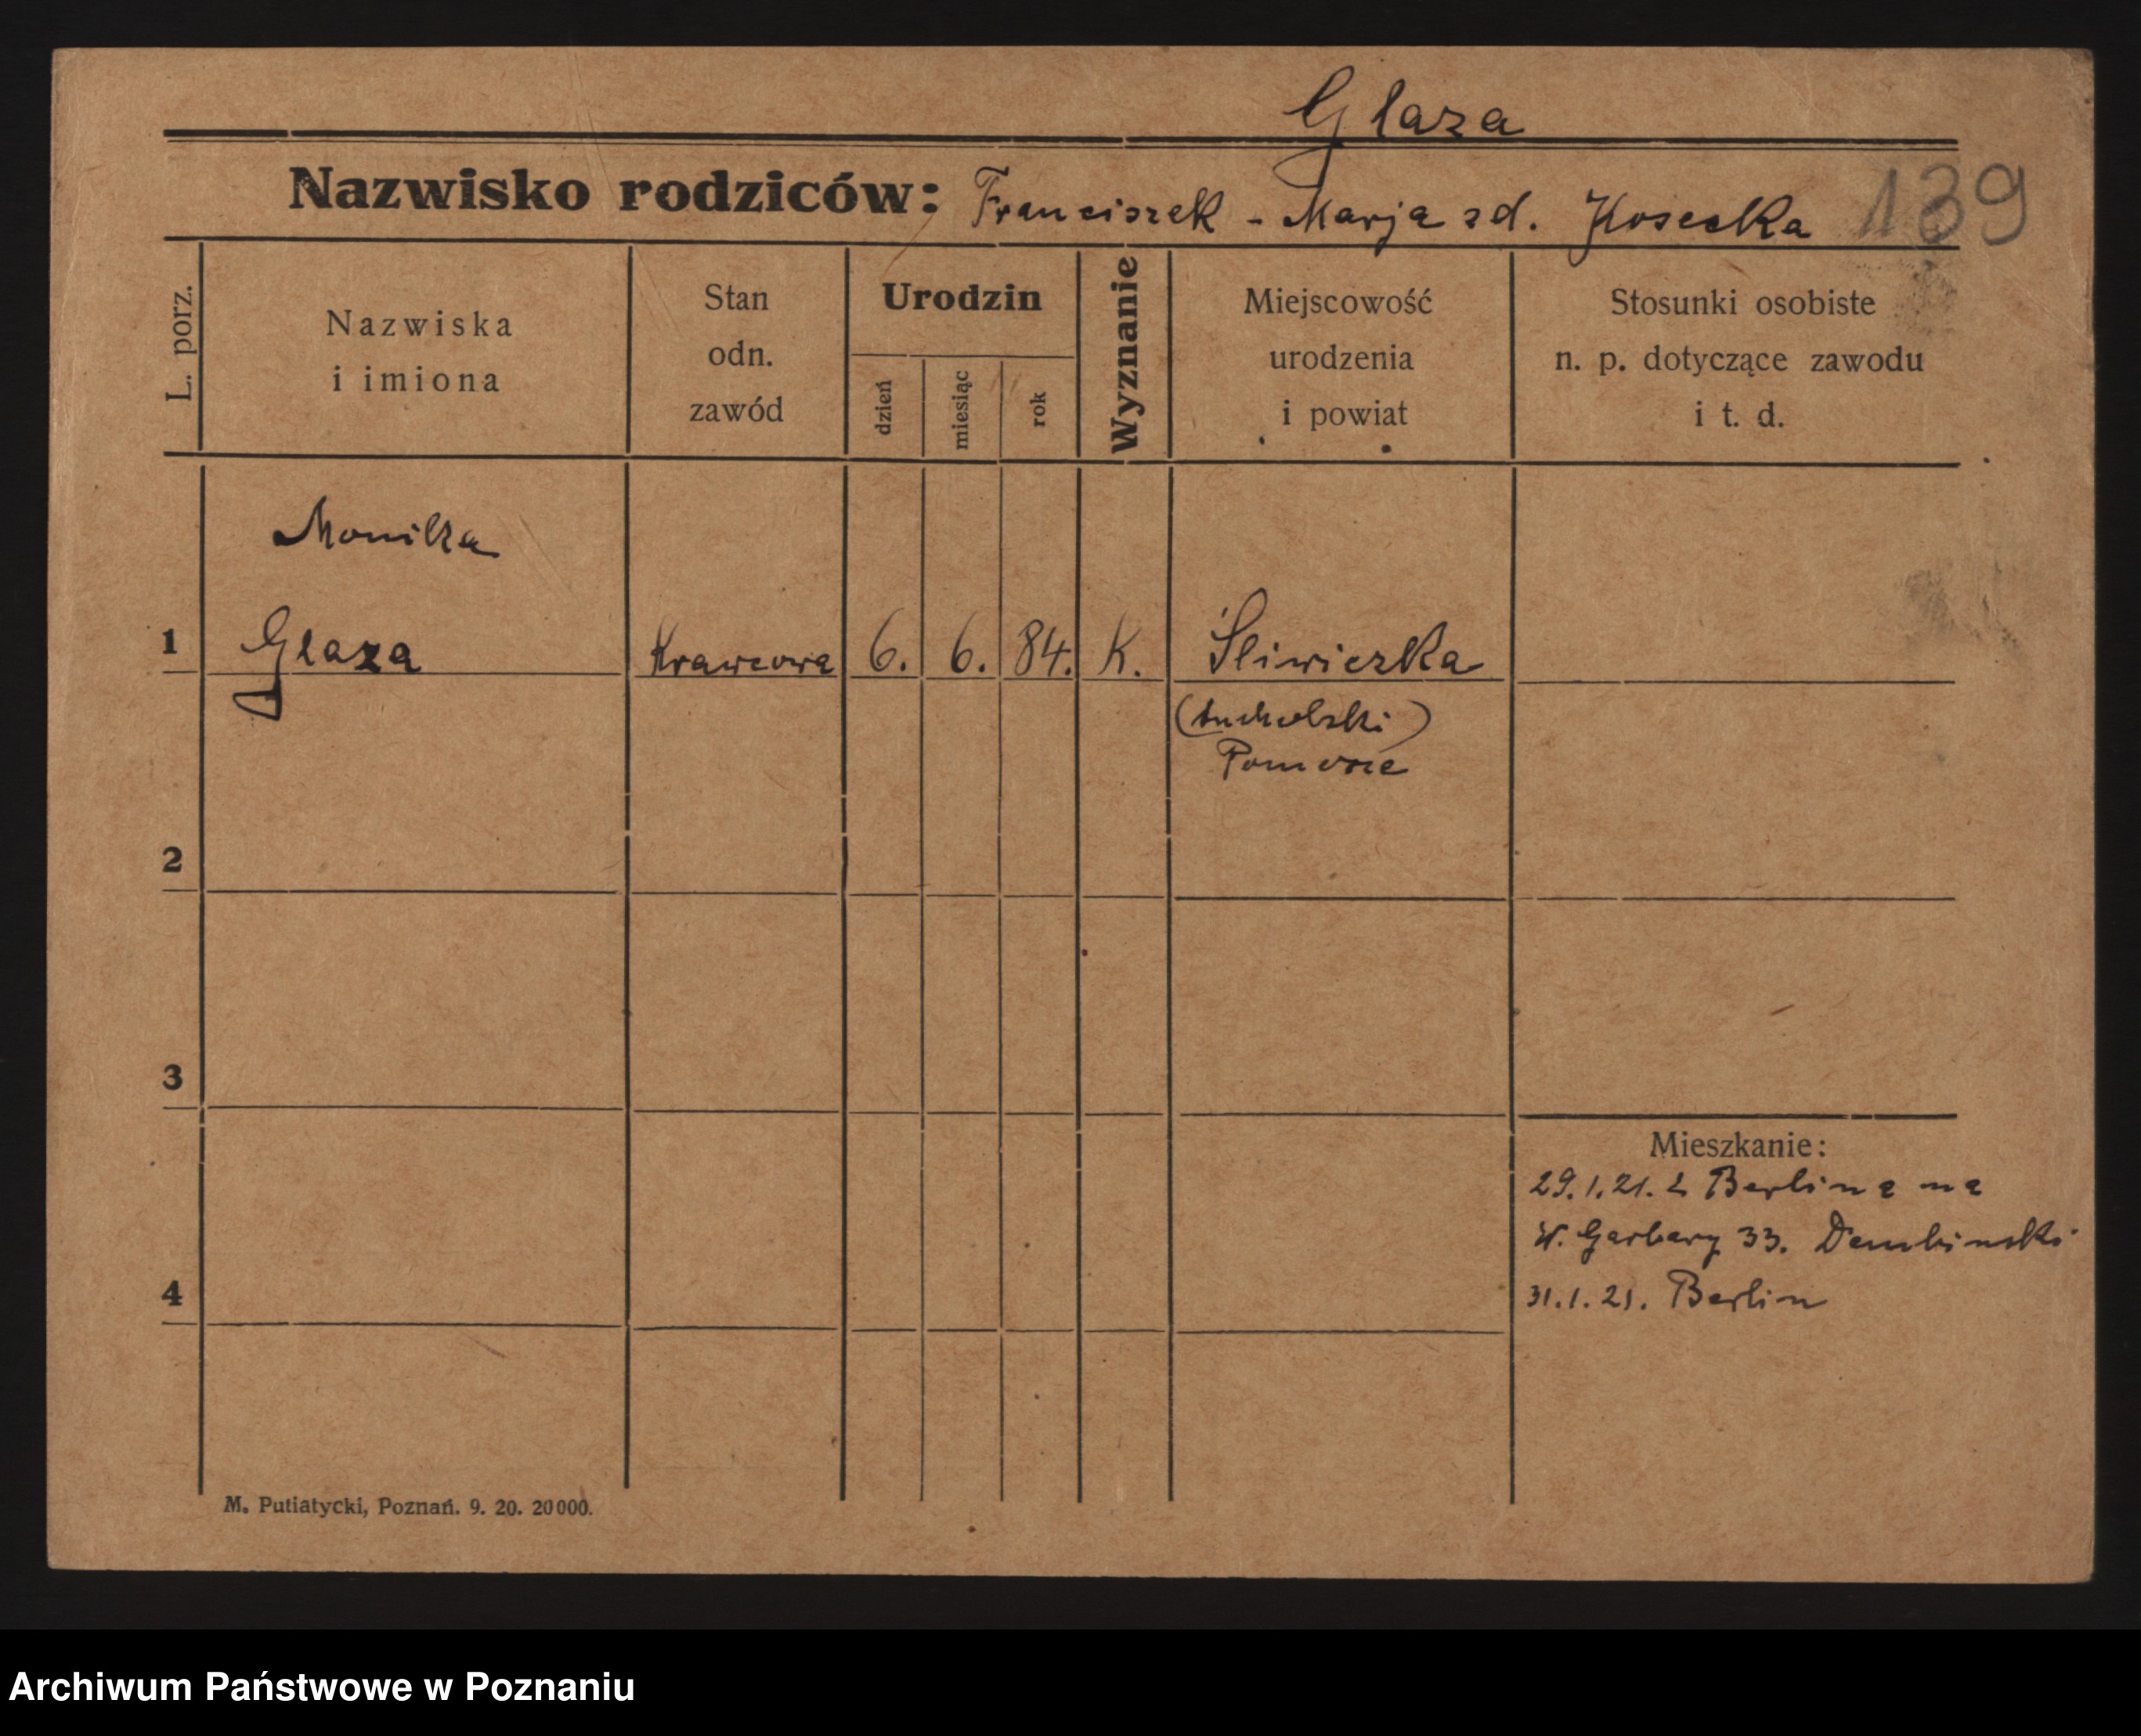 Glaza
Nazwisko rodziców: Franciszek - Marja zd. Kosecka 139
L. porz.
Nazwiska
i imiona
Stan
odn.
zawód
Urodzin
dzień
miesiąc
rok
Wyznanie
Miejscowość
urodzenia
i powiat
Stosunki osobiste
n. p. dotyczące zawodu
i t. d.
Monika
1 Glaza Krawcowa 6. 6. 84. K. Śliwiczka
(tucholski)
Pomorze
2
3
Mieszkanie:
29.1.21. z Berlina na
W. Garbary 33. Dembinski
4 31.1.21. Berlin
M. Putiatycki, Poznań. 9. 20. 20000.
Archiwum Państwowe w Poznaniu